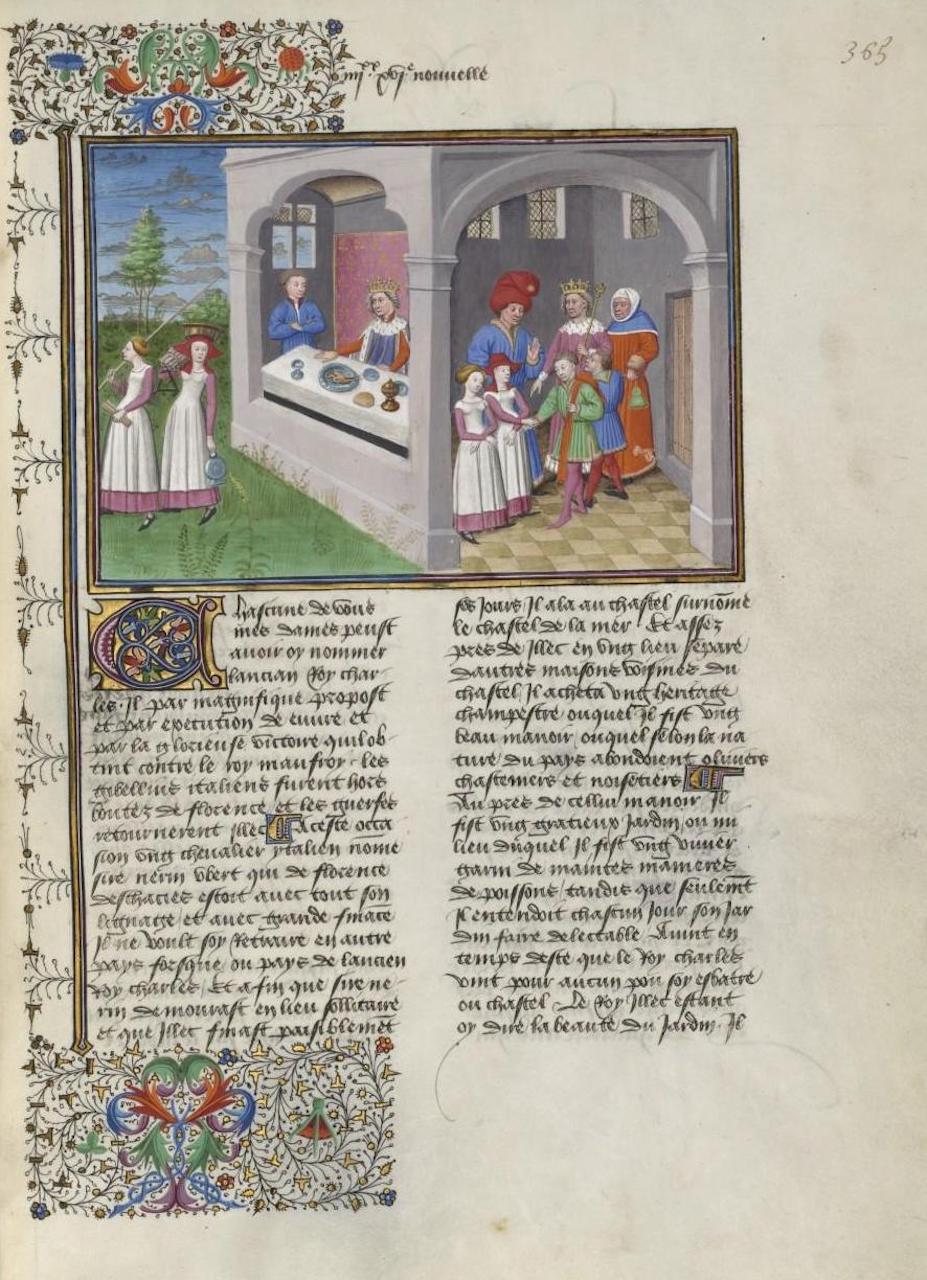 365
iiijxx xvje nouvelle
Chascune de vous
mes dames peust
avoir oy nommer
lancian Roy char
les. Il par magnifique propost
et par execution de euure et
par la glorieuse victoire quil ob
tint contre le roy maufroy les
gibellins italiens furent hors
boutez de florence et les guerfes
retournerent illec A ceste occa
sion ung chevalier ytalien nome
sire nerin ubert qui de florence
deschacies estoit avec tout son
lignage et avec grande finace
Il ne voult soy Retraire en autre
pays foresque ou pays de lancien
Roy charles Et afin que sire ne
rin demourast en lieu sollitaire
et que Illec finast paisiblemēt
ses Jours Il ala au chastel surnōme
le chastel de la mer Et assez
pres de Illec en ung lieu sepāre
dautres maisons voisines du
chastel Il acheta ung heritage
champestre ouquel Il fist ung
beau manoir ouquel selon la na
ture du pays abondoient oliviers
chastemers et noisetiers
Au pres de cellui manoir Il
fist ung gratieux Jardin ou mi
lieu duquel Il fist ung vivier
garni de maintes manieres
de poissons tandis que seulemēt
Il entendoit chascun Jour son Jar
din faire delectable Avint en
temps deste que le Roy charles
vint pour aucun pou soy esbatre
ou chastel Le Roy Illec estant
oy dire la beaute du Jardin Il